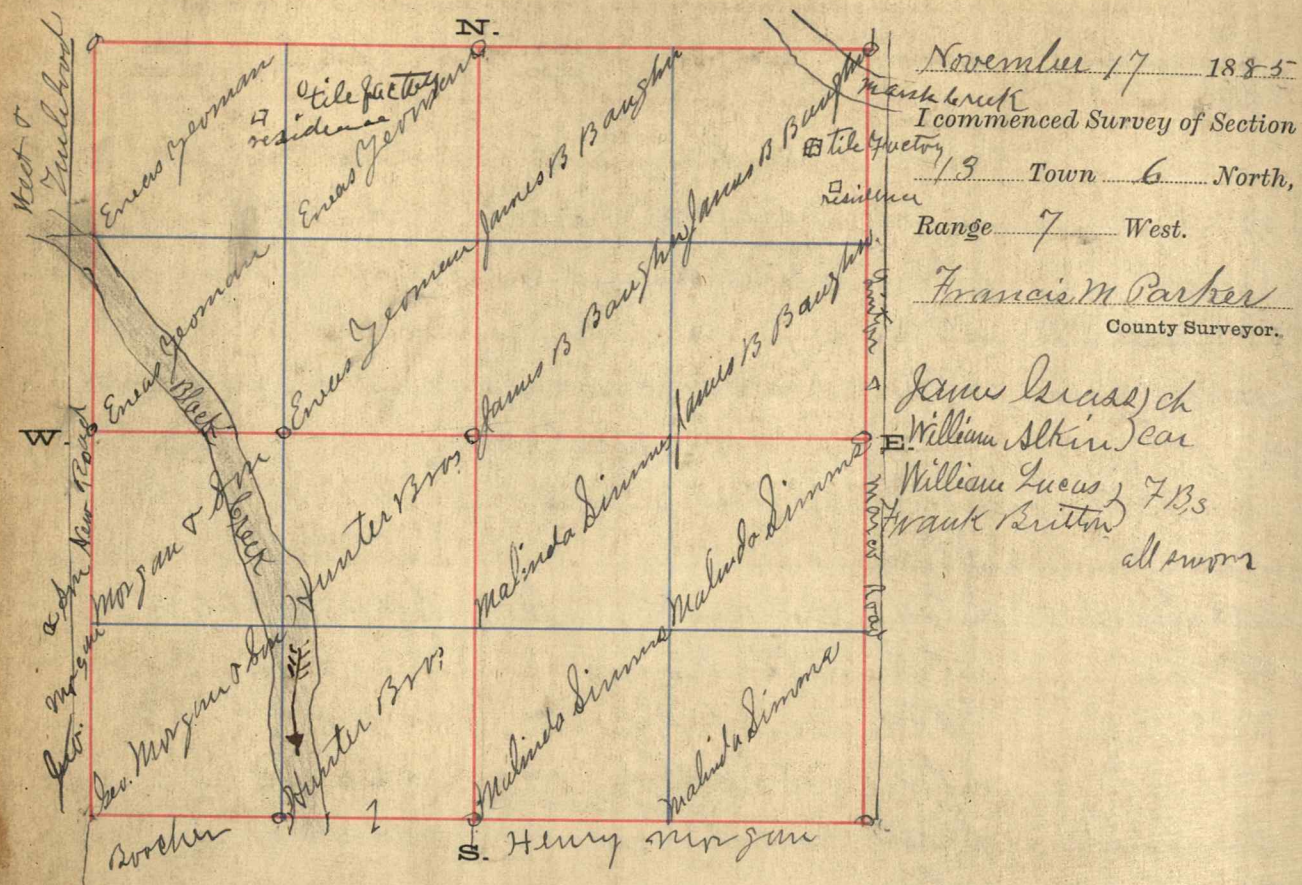 N.
West &
Eneas Yeoman
tile factory
residence
Eneas Yeoman
James B Baugher
James B Baugher
Marsh Creek
tile factory
residence
Eneas Yeoman
Eneas Yeoman
James B Baugher
James B Baugher
W.
E.
Black
Creek
Morgan & Son
Hunter Bros
Malinda Simms
Malinda Simms
Geo. Morgan & Son
Hunter Bros
Malinda Simms
Malinda Simms
Geo. Morgan & Son New Road
Linton &
Marco Road
Boocher
S.
Henry Morgan
November 17 1885
I commenced Survey of Section
13 Town 6 North,
Range 7 West.
Francis M Parker
County Surveyor.
James Grass) ch
William Alkin) car
William Lucas
Frank Britton) F B,s
all sworn